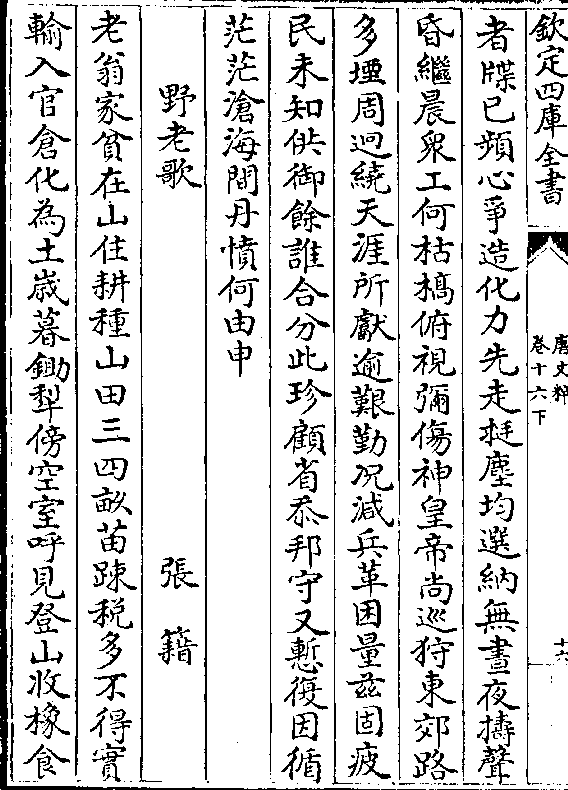 欽定四庫全書
唐文粹
卷十六下
十六
者牒已頻心爭造化力先走挺塵均選納無晝夜擣聲
昏繼晨衆工何枯槁俯視彌傷神皇帝尚巡狩東郊路
多堙周迴繞天涯所獻逾艱勤况減兵革困量茲固疲
民未知供御餘誰合分此珍顧省忝邦守又慙復因循
茫茫滄海間丹憤何由申
野老歌 張籍
老翁家貧在山住耕種山田三四畝苗踈稅多不得實
輸入官倉化為土歲暮鋤犁傍空室呼見登山收橡食